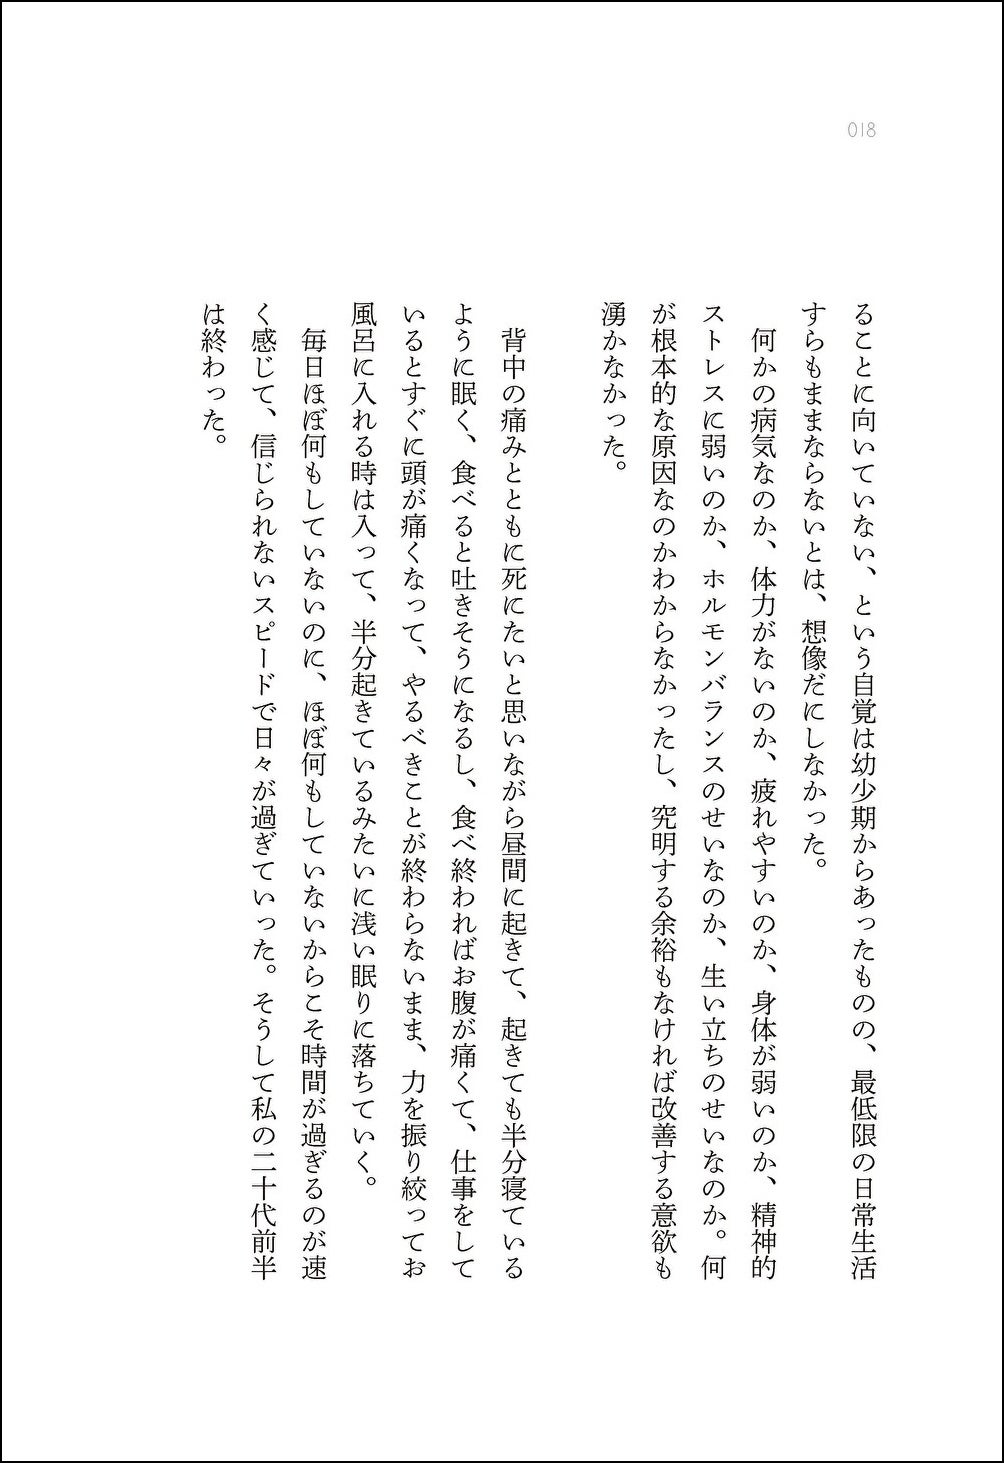 018
ることに向いていない、という自覚は幼少期からあったものの、最低限の日常生活
すらもままならないとは、想像だにしなかった。
　何かの病気なのか、体力がないのか、疲れやすいのか、身体が弱いのか、精神的
ストレスに弱いのか、ホルモンバランスのせいなのか、生い立ちのせいなのか。何
が根本的な原因なのかわからなかったし、究明する余裕もなければ改善する意欲も
湧かなかった。
　背中の痛みとともに死にたいと思いながら昼間に起きて、起きても半分寝ている
ように眠く、食べると吐きそうになるし、食べ終わればお腹が痛くて、仕事をして
いるとすぐに頭が痛くなって、やるべきことが終わらないまま、力を振り絞ってお
風呂に入れる時は入って、半分起きているみたいに浅い眠りに落ちていく。
　毎日ほぼ何もしていないのに、ほぼ何もしていないからこそ時間が過ぎるのが速
く感じて、信じられないスピードで日々が過ぎていった。そうして私の二十代前半
は終わった。